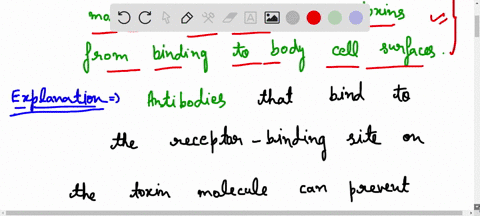 from binding to body cell surfaces.
Explanation => Antibodies that bind to
the receptor - binding site on
the toxin molecule can prevent